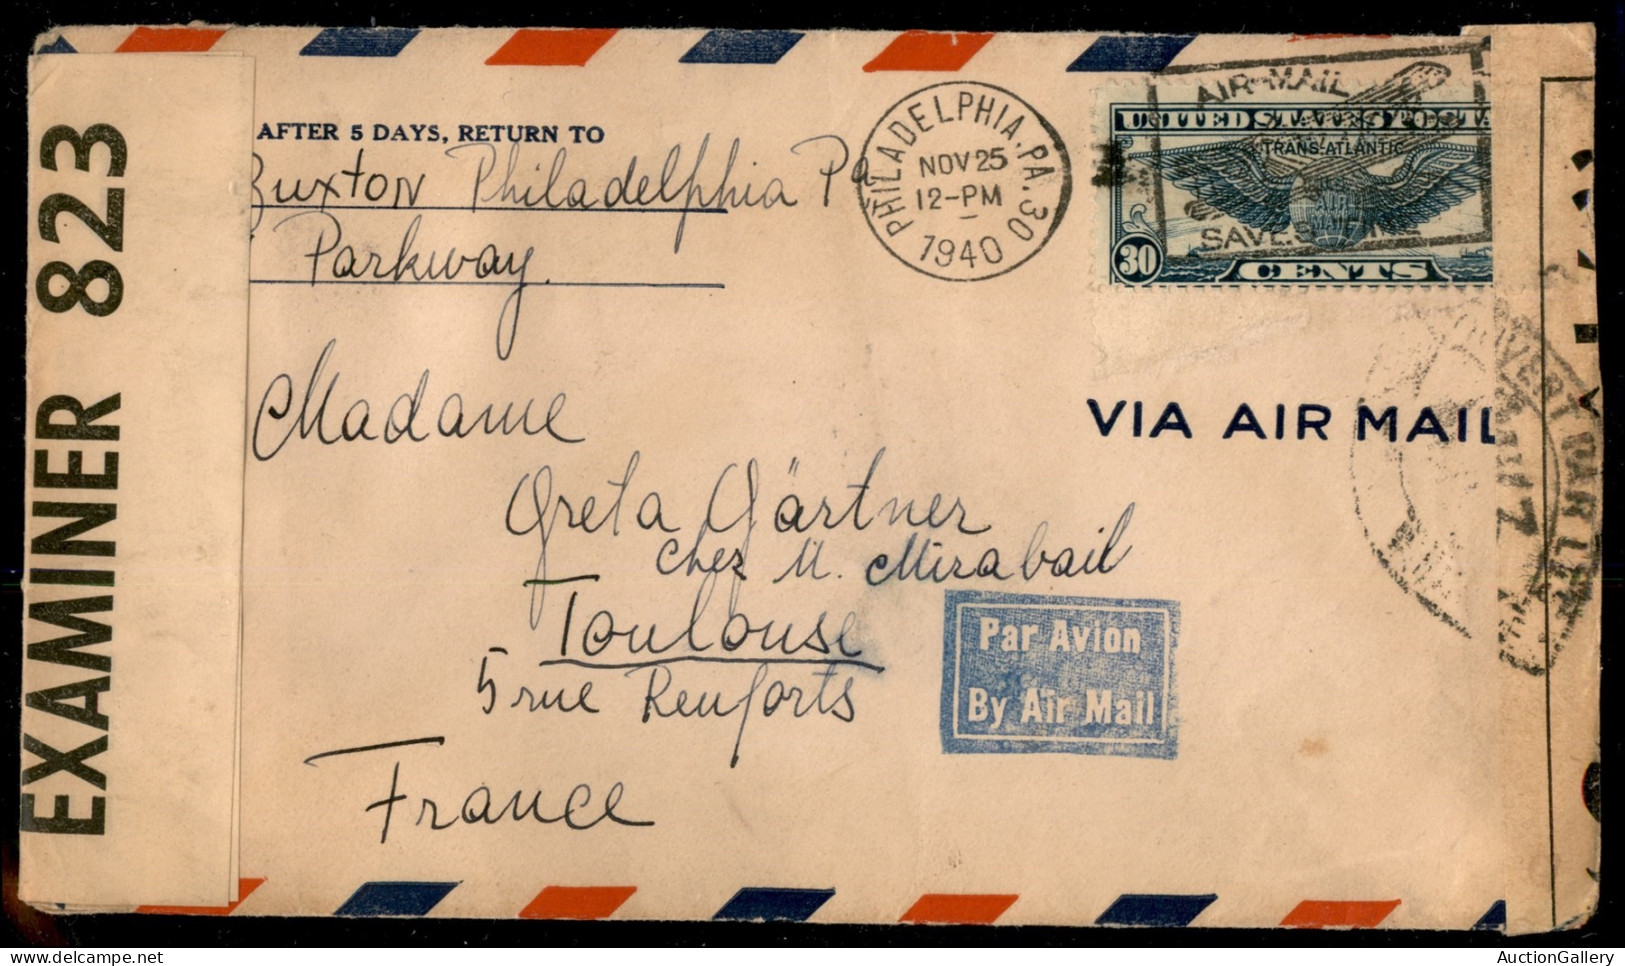 EXAMINER 823
AFTER 5 DAYS, RETURN TO
Buxton Philadelphia Pa
Parkway.
PHILADELPHIA, PA. 30
NOV 25
12-PM
1940
AIR MAIL
SAVES TIME
UNITED STATES POSTA
TRANS-ATLANTIC
AIR
MAIL
30
CENTS
VIA AIR MAIL
OUVERT PAR
Madame
Greta Gärtner
chez M. Mirabail
Toulouse
5 rue Renforts
France
Par Avion
By Air Mail
AuctionGallery